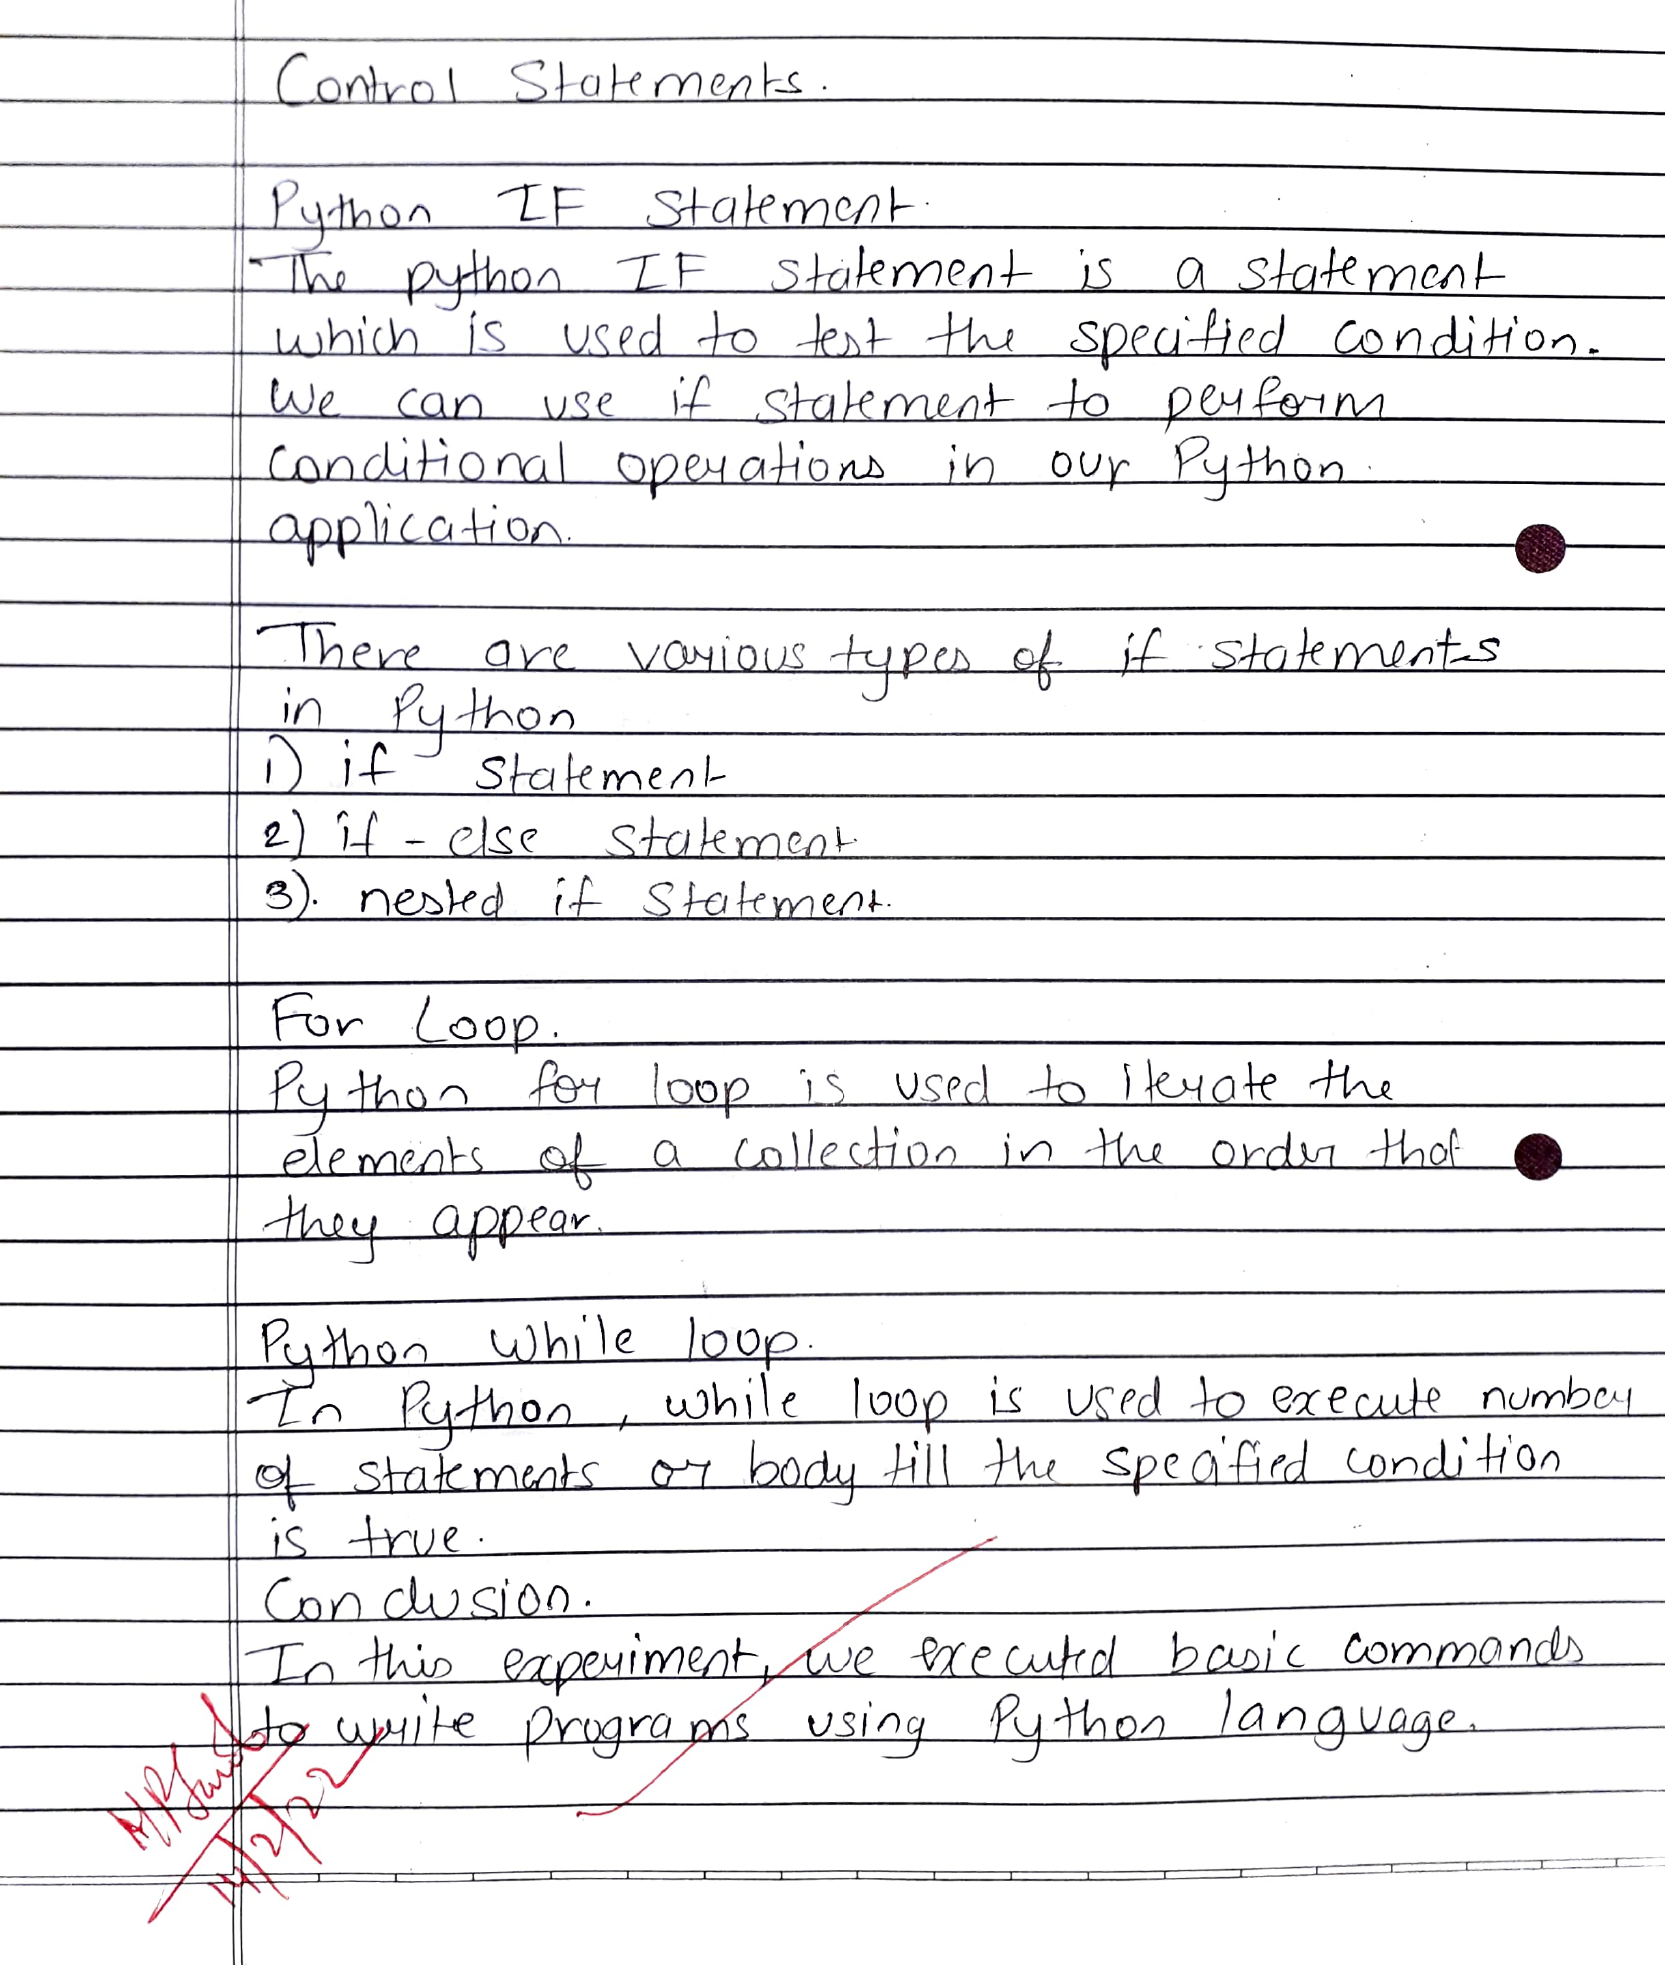 Control Statements.
Python IF Statement.
The python IF statement is a statement
which is used to test the specified condition.
We can use if statement to perform
conditional operations in our Python
application.
There are various types of if statements
in Python
1) if statement
2) if - else statement
3). nested if statement.
For Loop.
Python for loop is used to iterate the
elements of a collection in the order that
they appear.
Python while loop.
In Python, while loop is used to execute number
of statements or body till the specified condition
is true.
Conclusion.
In this experiment, we executed basic commands
to write programs using Python language.